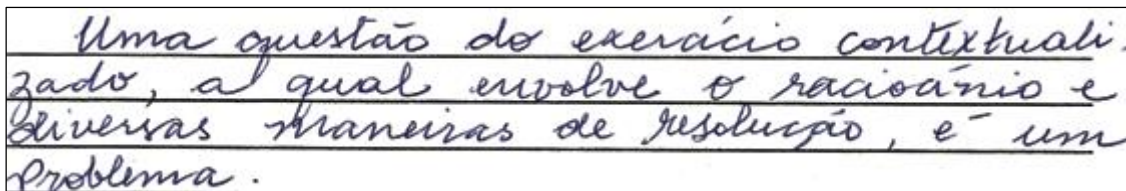 Uma questão do exercício contextuali-
zado, a qual envolve o raciocínio e
diversas maneiras de resolução, é um
problema.